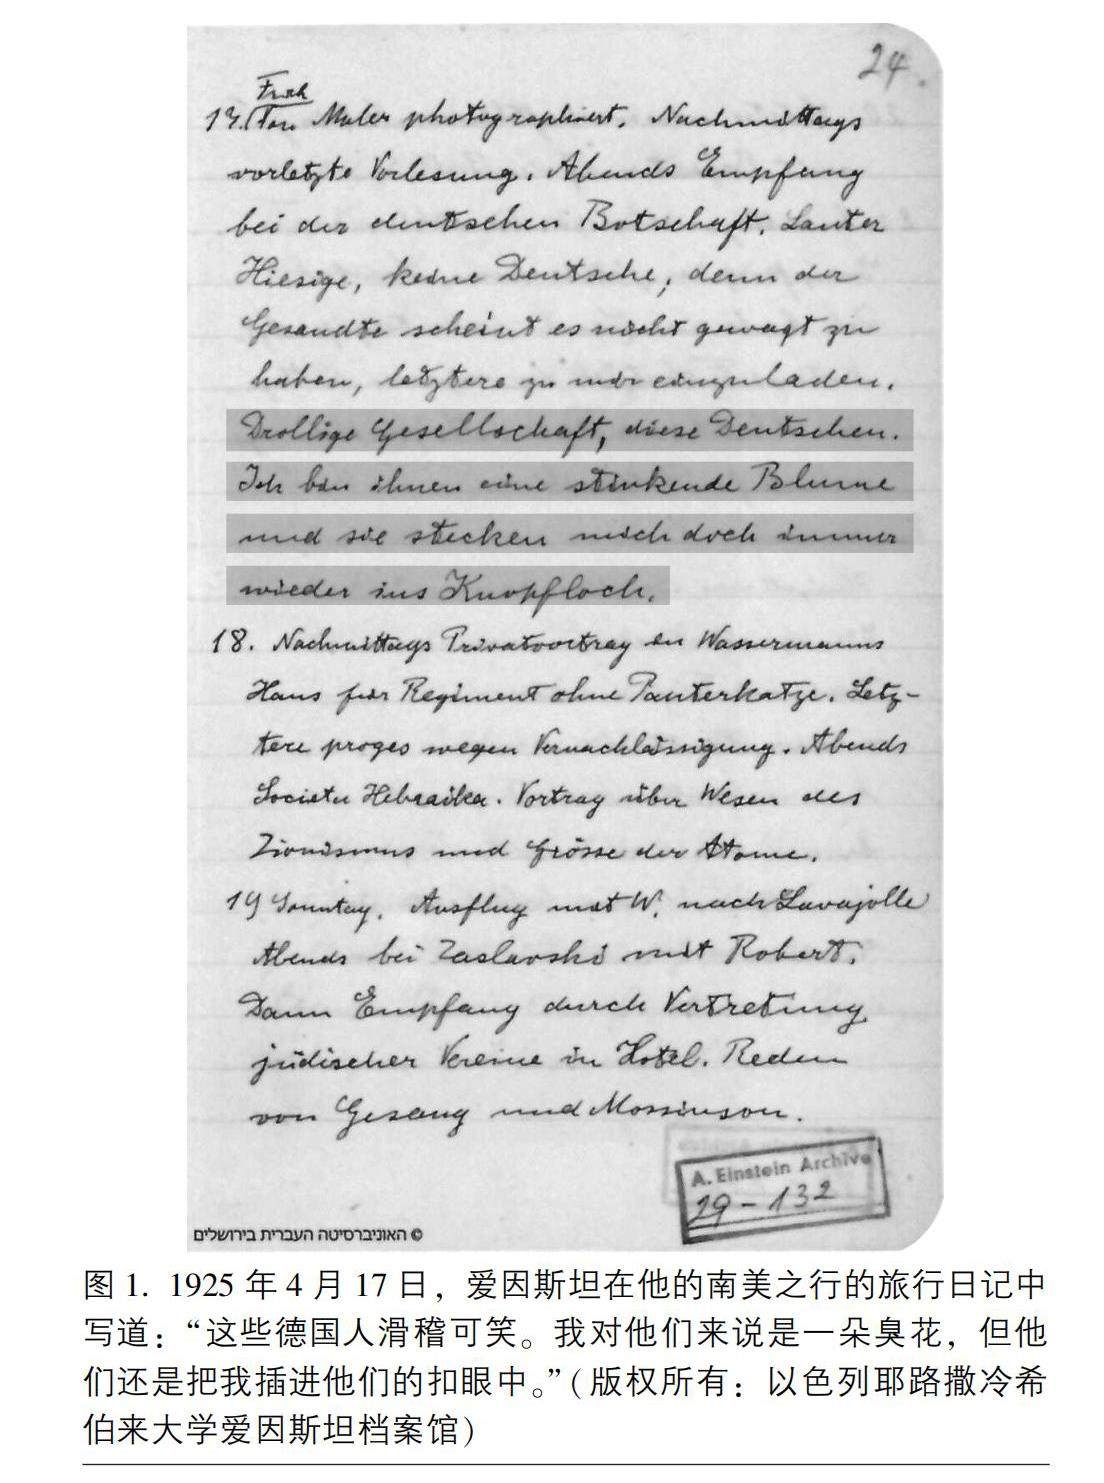 24.
Früh
17. Von Maler photographiert. Nachmittags
vorletzte Vorlesung. Abends Empfang
bei der deutschen Botschaft. Lauter
Hiesige, keine Deutsche, denn der
Gesandte scheint es nicht gewagt zu
haben, letztere zu mir einzuladen.
Drollige Gesellschaft, diese Deutschen.
Ich bin ihnen eine stinkende Blume
und sie stecken mich doch immer
wieder ins Knopfloch.
18. Nachmittags Privatvortrag in Wassermanns
Haus für Regiment ohne Panterkatze. Letz-
tere proges wegen Vernachlässigung. Abends
Societa Hebraika. Vortrag über Wesen des
Zionismus und Grösse der Atome.
19 Sonntag. Ausflug mit W. nach Lavajolle
Abends bei Zaslavski mit Robert.
Dann Empfang durch Vertretung
jüdischer Vereine in Hotel. Reden
von Gesang und Mossinson.
A. Einstein Archive
29-132
© האוניברסיטה העברית בירושלים
图 1. 1925 年 4 月 17 日，爱因斯坦在他的南美之行的旅行日记中
写道：“这些德国人滑稽可笑。我对他们来说是一朵臭花，但他
们还是把我插进他们的扣眼中。”（版权所有：以色列耶路撒冷希
伯来大学爱因斯坦档案馆）